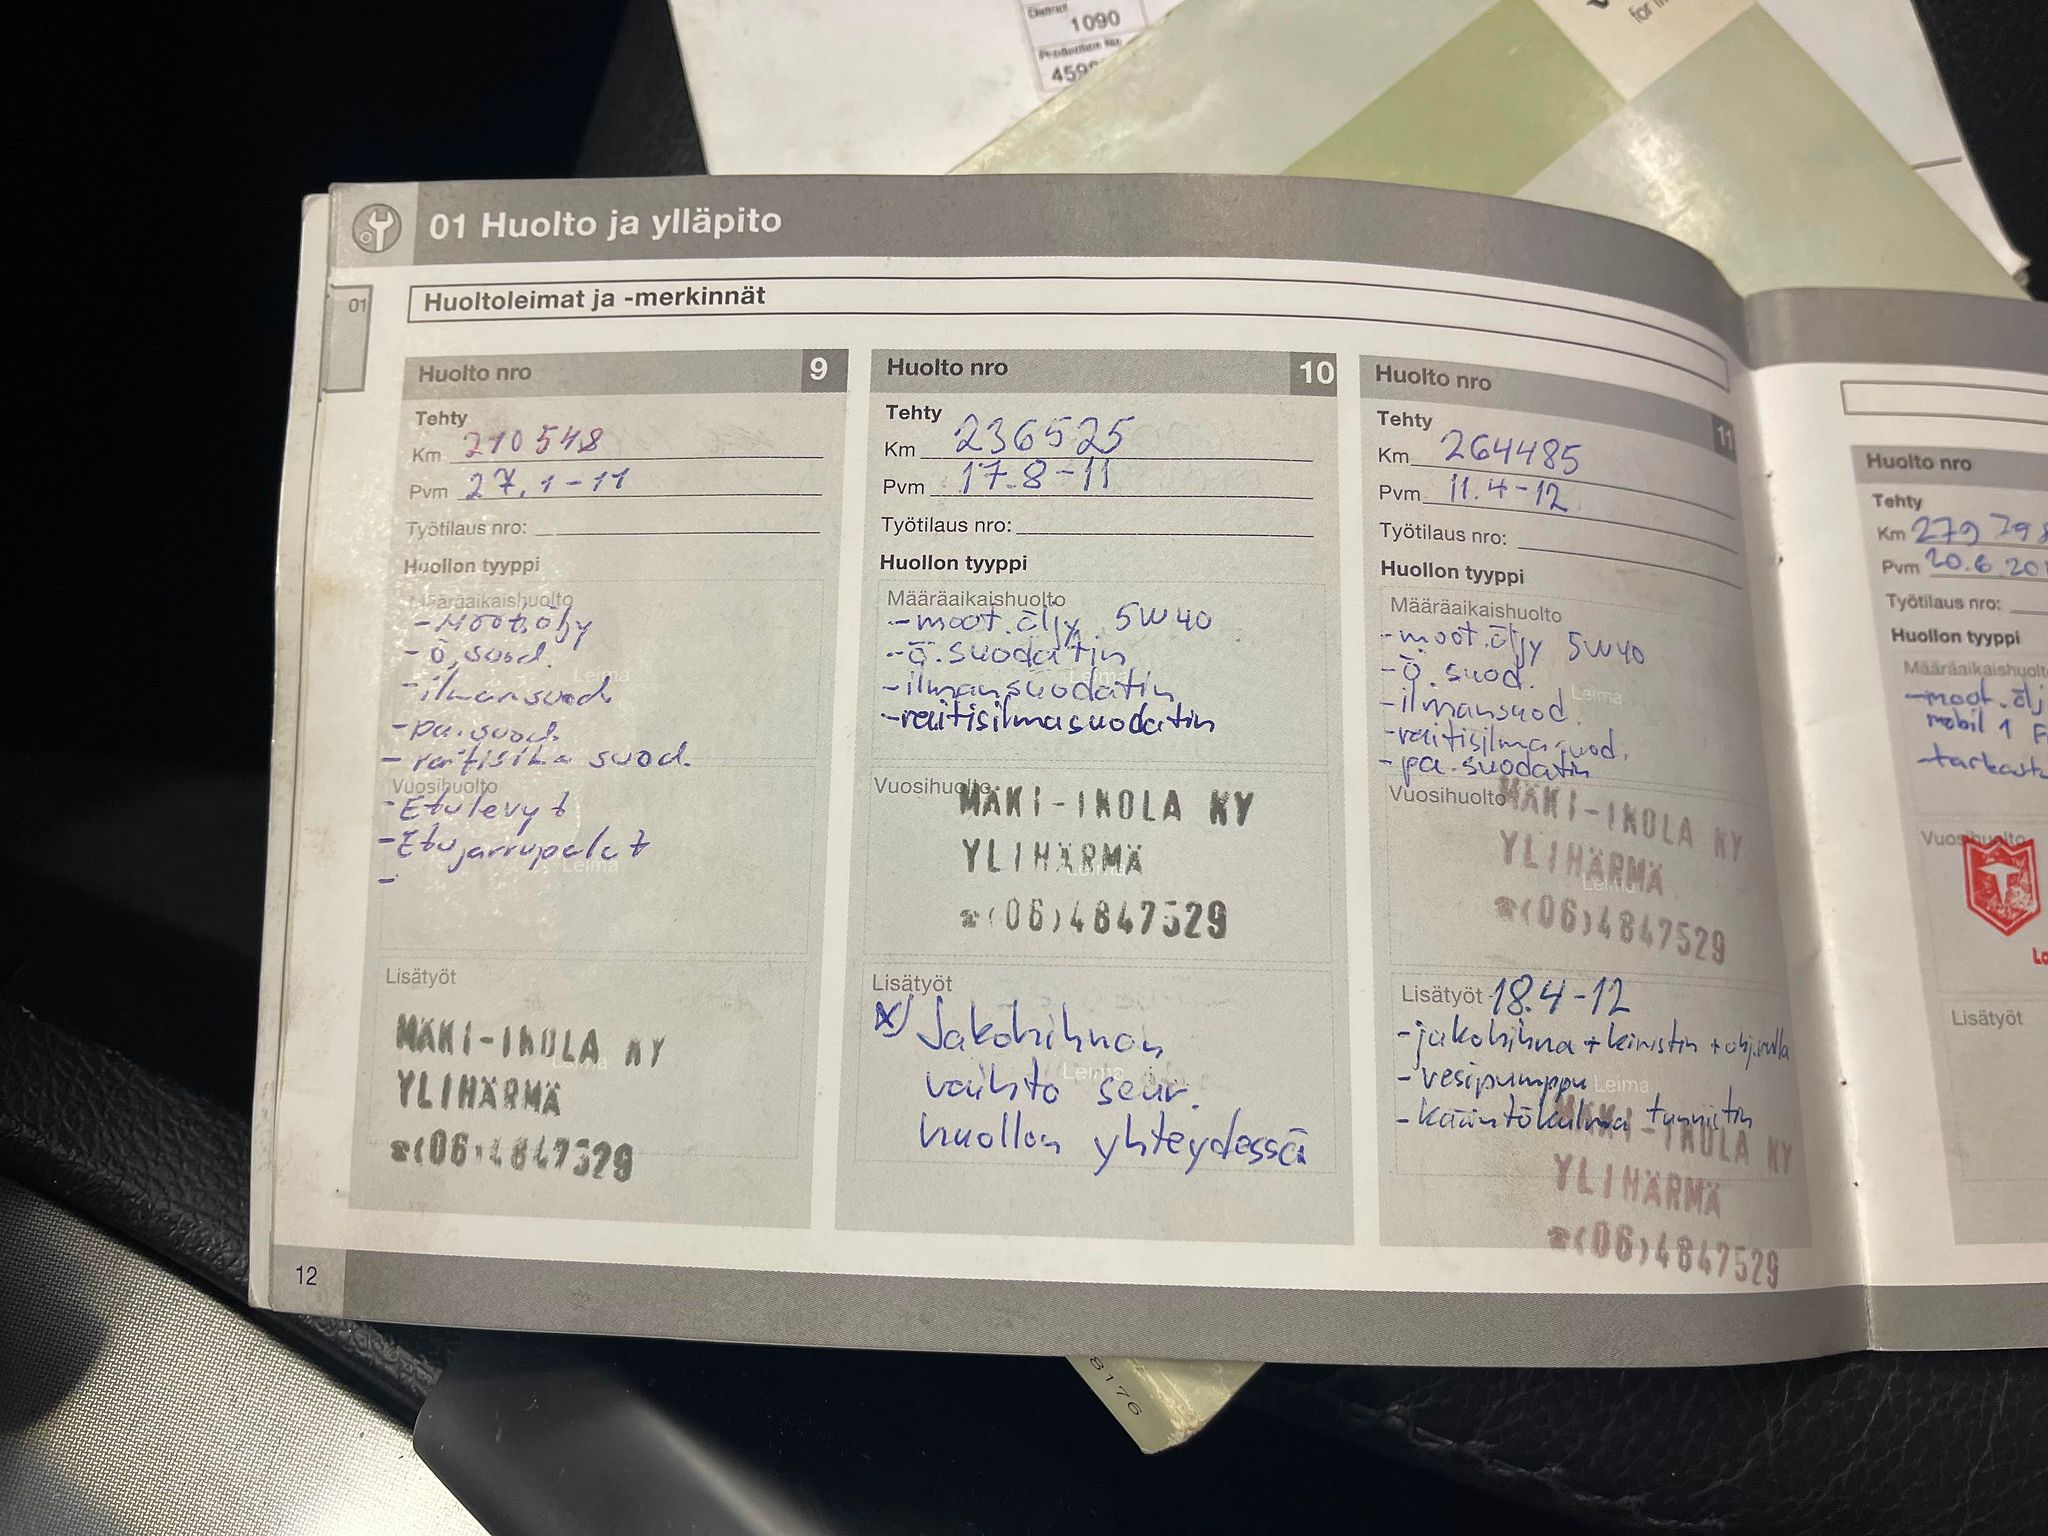 1090
Production No
459
for
01 Huolto ja ylläpito
01
Huoltoleimat ja -merkinnät
Huolto nro 9
Tehty
Km 210548
Pvm 27.1-11
Työtilaus nro:
Huollon tyyppi
Määräaikaishuolto
- Moot.öljy
- ö.suod.
Leima
- ilmansuod.
- pa.suod.
- raitisilma suod.
Vuosihuolto
- Etulevyt
- Etujarrupalat
Leima
-
Lisätyöt
MÄKI-IKOLA KY
Leima
YLIHÄRMÄ
☎(06)4847529
Huolto nro 10
Tehty
Km 236525
Pvm 17.8-11
Työtilaus nro:
Huollon tyyppi
Määräaikaishuolto
- moot.öljy 5W40
- ö.suodatin
Leima
- ilmansuodatin
- raitisilmasuodatin
Vuosihuolto
MÄKI-IKOLA KY
YLIHÄRMÄ
Leima
☎(06)4847529
Lisätyöt
x) Jakohihnan
Leima
vaihto seur.
huollon yhteydessä
Huolto nro 11
Tehty
Km 264485
Pvm 11.4-12
Työtilaus nro:
Huollon tyyppi
Määräaikaishuolto
- moot.öljy 5W40
- ö.suod.
Leima
- ilmansuod.
- raitisilmasuod.
- pa.suodatin
Vuosihuolto
MÄKI-IKOLA KY
YLIHÄRMÄ
Leima
☎(06)4847529
Lisätyöt 18.4-12
- jakohihna + kiristin + ohj.rulla
- vesipumppu
Leima
- kääntökulma tunnistin
MÄKI-IKOLA KY
YLIHÄRMÄ
☎(06)4847529
12
Huolto nro
Tehty
Km 279798
Pvm 20.6.201
Työtilaus nro:
Huollon tyyppi
Määräaikaishuolto
- moot.ölj
mobil 1 F
- tarkastu
Vuosihuolto
T
Lisätyöt
8176